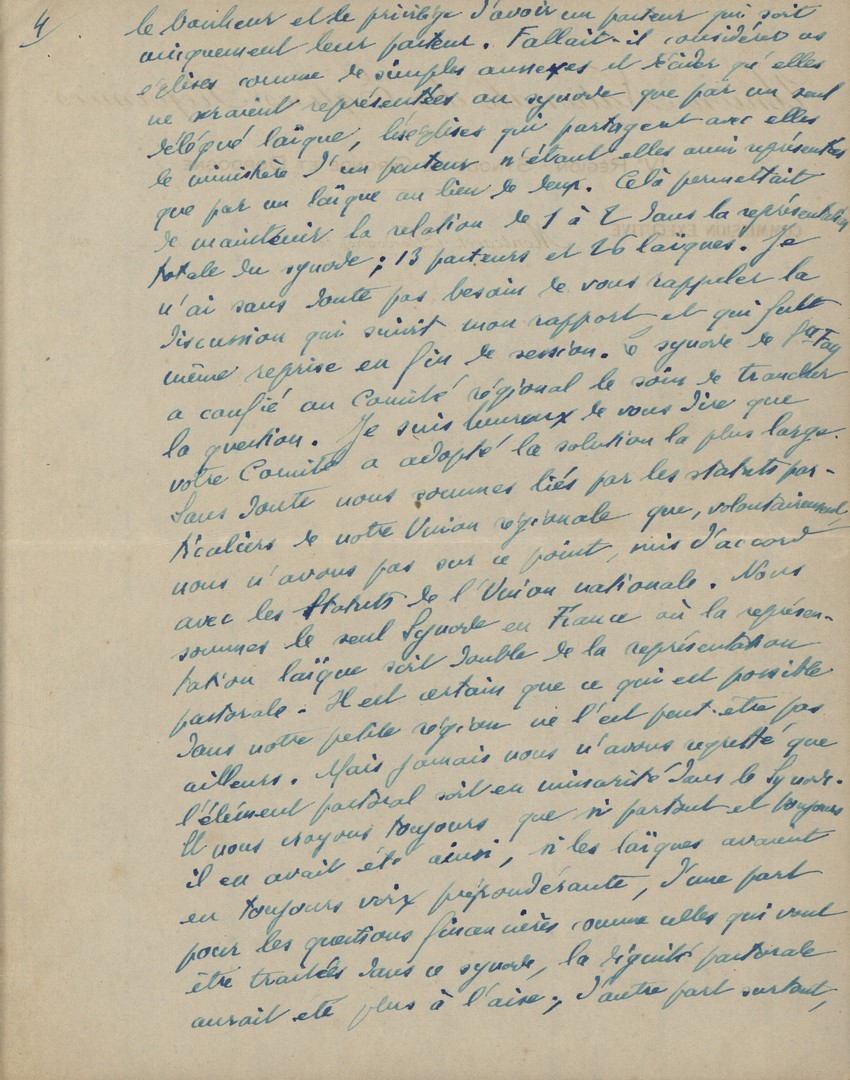 4
le bonheur et le privilège d'avoir un pasteur qui soit
uniquement leur pasteur. Fallait-il considérer ces
églises comme de simples annexes et décider qu'elles
ne seraient représentées au synode que par un seul
délégué laïque, les églises qui partagent avec elles
le ministère d'un pasteur n'étant elles aussi représentées
que par un laïque au lieu de deux. Celà permettait
de maintenir la relation de 1 à 2 dans la représentation
totale du synode ; 13 pasteurs et 26 laïques. Je
n'ai sans doute pas besoin de vous rappeler la
discussion qui suivit mon rapport et qui fut
même reprise en fin de session. Le synode de Ste Foy
a confié au Comité régional le soin de trancher
la question. Je suis heureux de vous dire que
votre Comité a adopté la solution la plus large.
Sans doute nous sommes liés par les statuts par-
ticuliers de notre Union régionale que, volontairement,
nous n'avons pas sur ce point, mis d'accord
avec les Statuts de l'Union nationale. Nous
sommes le seul Synode en France où la représen-
tation laïque soit double de la représentation
pastorale. Il est certain que ce qui est possible
dans notre petite région ne l'est peut-être pas
ailleurs. Mais jamais nous n'avons regretté que
l'élément pastoral soit en minorité dans le Synode.
Et nous croyons toujours que si partout et toujours
il en avait été ainsi, si les laïques avaient
eu toujours voix prépondérante, d'une part
pour les questions financières comme celles qui vont
être traitées dans ce synode, la dignité pastorale
aurait été plus à l'aise ; d'autre part surtout,